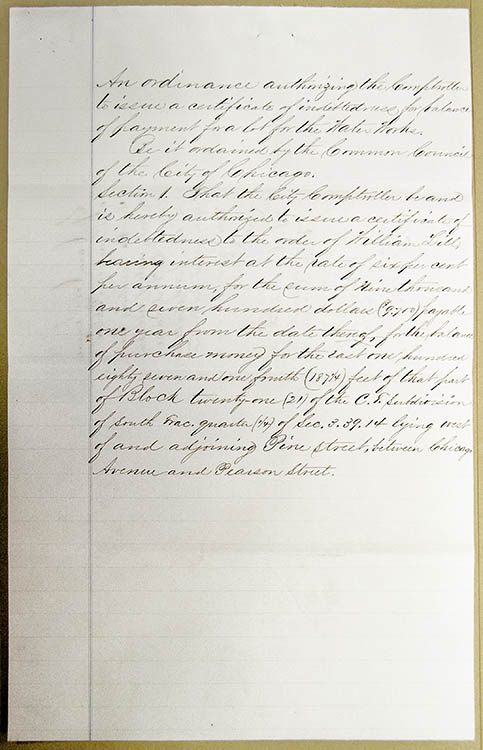 An ordinance authorizing the Comptroller
to issue a certificate of indebtedness for balance
of payment for a lot for the Water Works.
Be it ordained by the Common Council
of the City of Chicago.
Section 1. That the City Comptroller be and
is hereby authorized to issue a certificate of
indebtedness to the order of William Lill,
bearing interest at the rate of six per cent
per annum, for the sum of Nine thousand
and seven hundred dollars ($9,700) payable
one year from the date thereof, for the balance
of purchase money for the East one hundred
eighty seven and one fourth (187¼) feet of that part
of Block twenty-one (21) of the C. T. Subdivision
of South Frac. quarter (¼) of Sec. 3. 39. 14 lying west
of and adjoining Pine street, between Chicago
Avenue and Pearson Street.